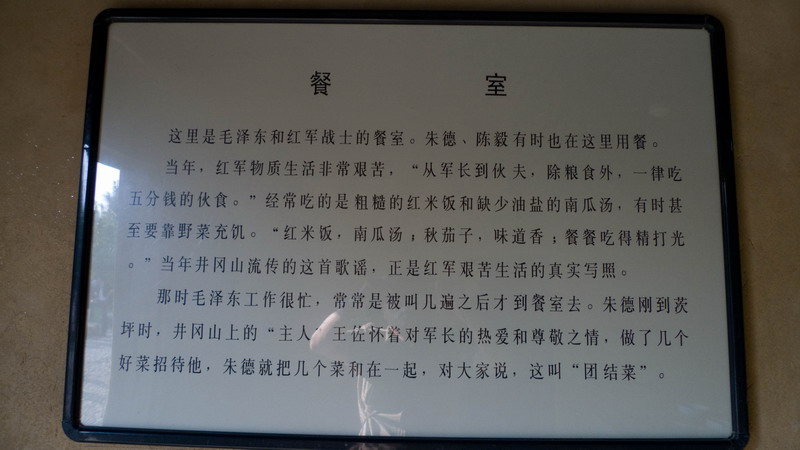 餐 室
这里是毛泽东和红军战士的餐室。朱德、陈毅有时也在这里用餐。
当年，红军物质生活非常艰苦，“从军长到伙夫，除粮食外，一律吃
五分钱的伙食。”经常吃的是粗糙的红米饭和缺少油盐的南瓜汤，有时甚
至要靠野菜充饥。“红米饭，南瓜汤；秋茄子，味道香；餐餐吃得精打光
。”当年井冈山流传的这首歌谣，正是红军艰苦生活的真实写照。
那时毛泽东工作很忙，常常是被叫几遍之后才到餐室去。朱德刚到茨
坪时，井冈山上的“主人”王佐怀着对军长的热爱和尊敬之情，做了几个
好菜招待他，朱德就把几个菜和在一起，对大家说，这叫“团结菜”。